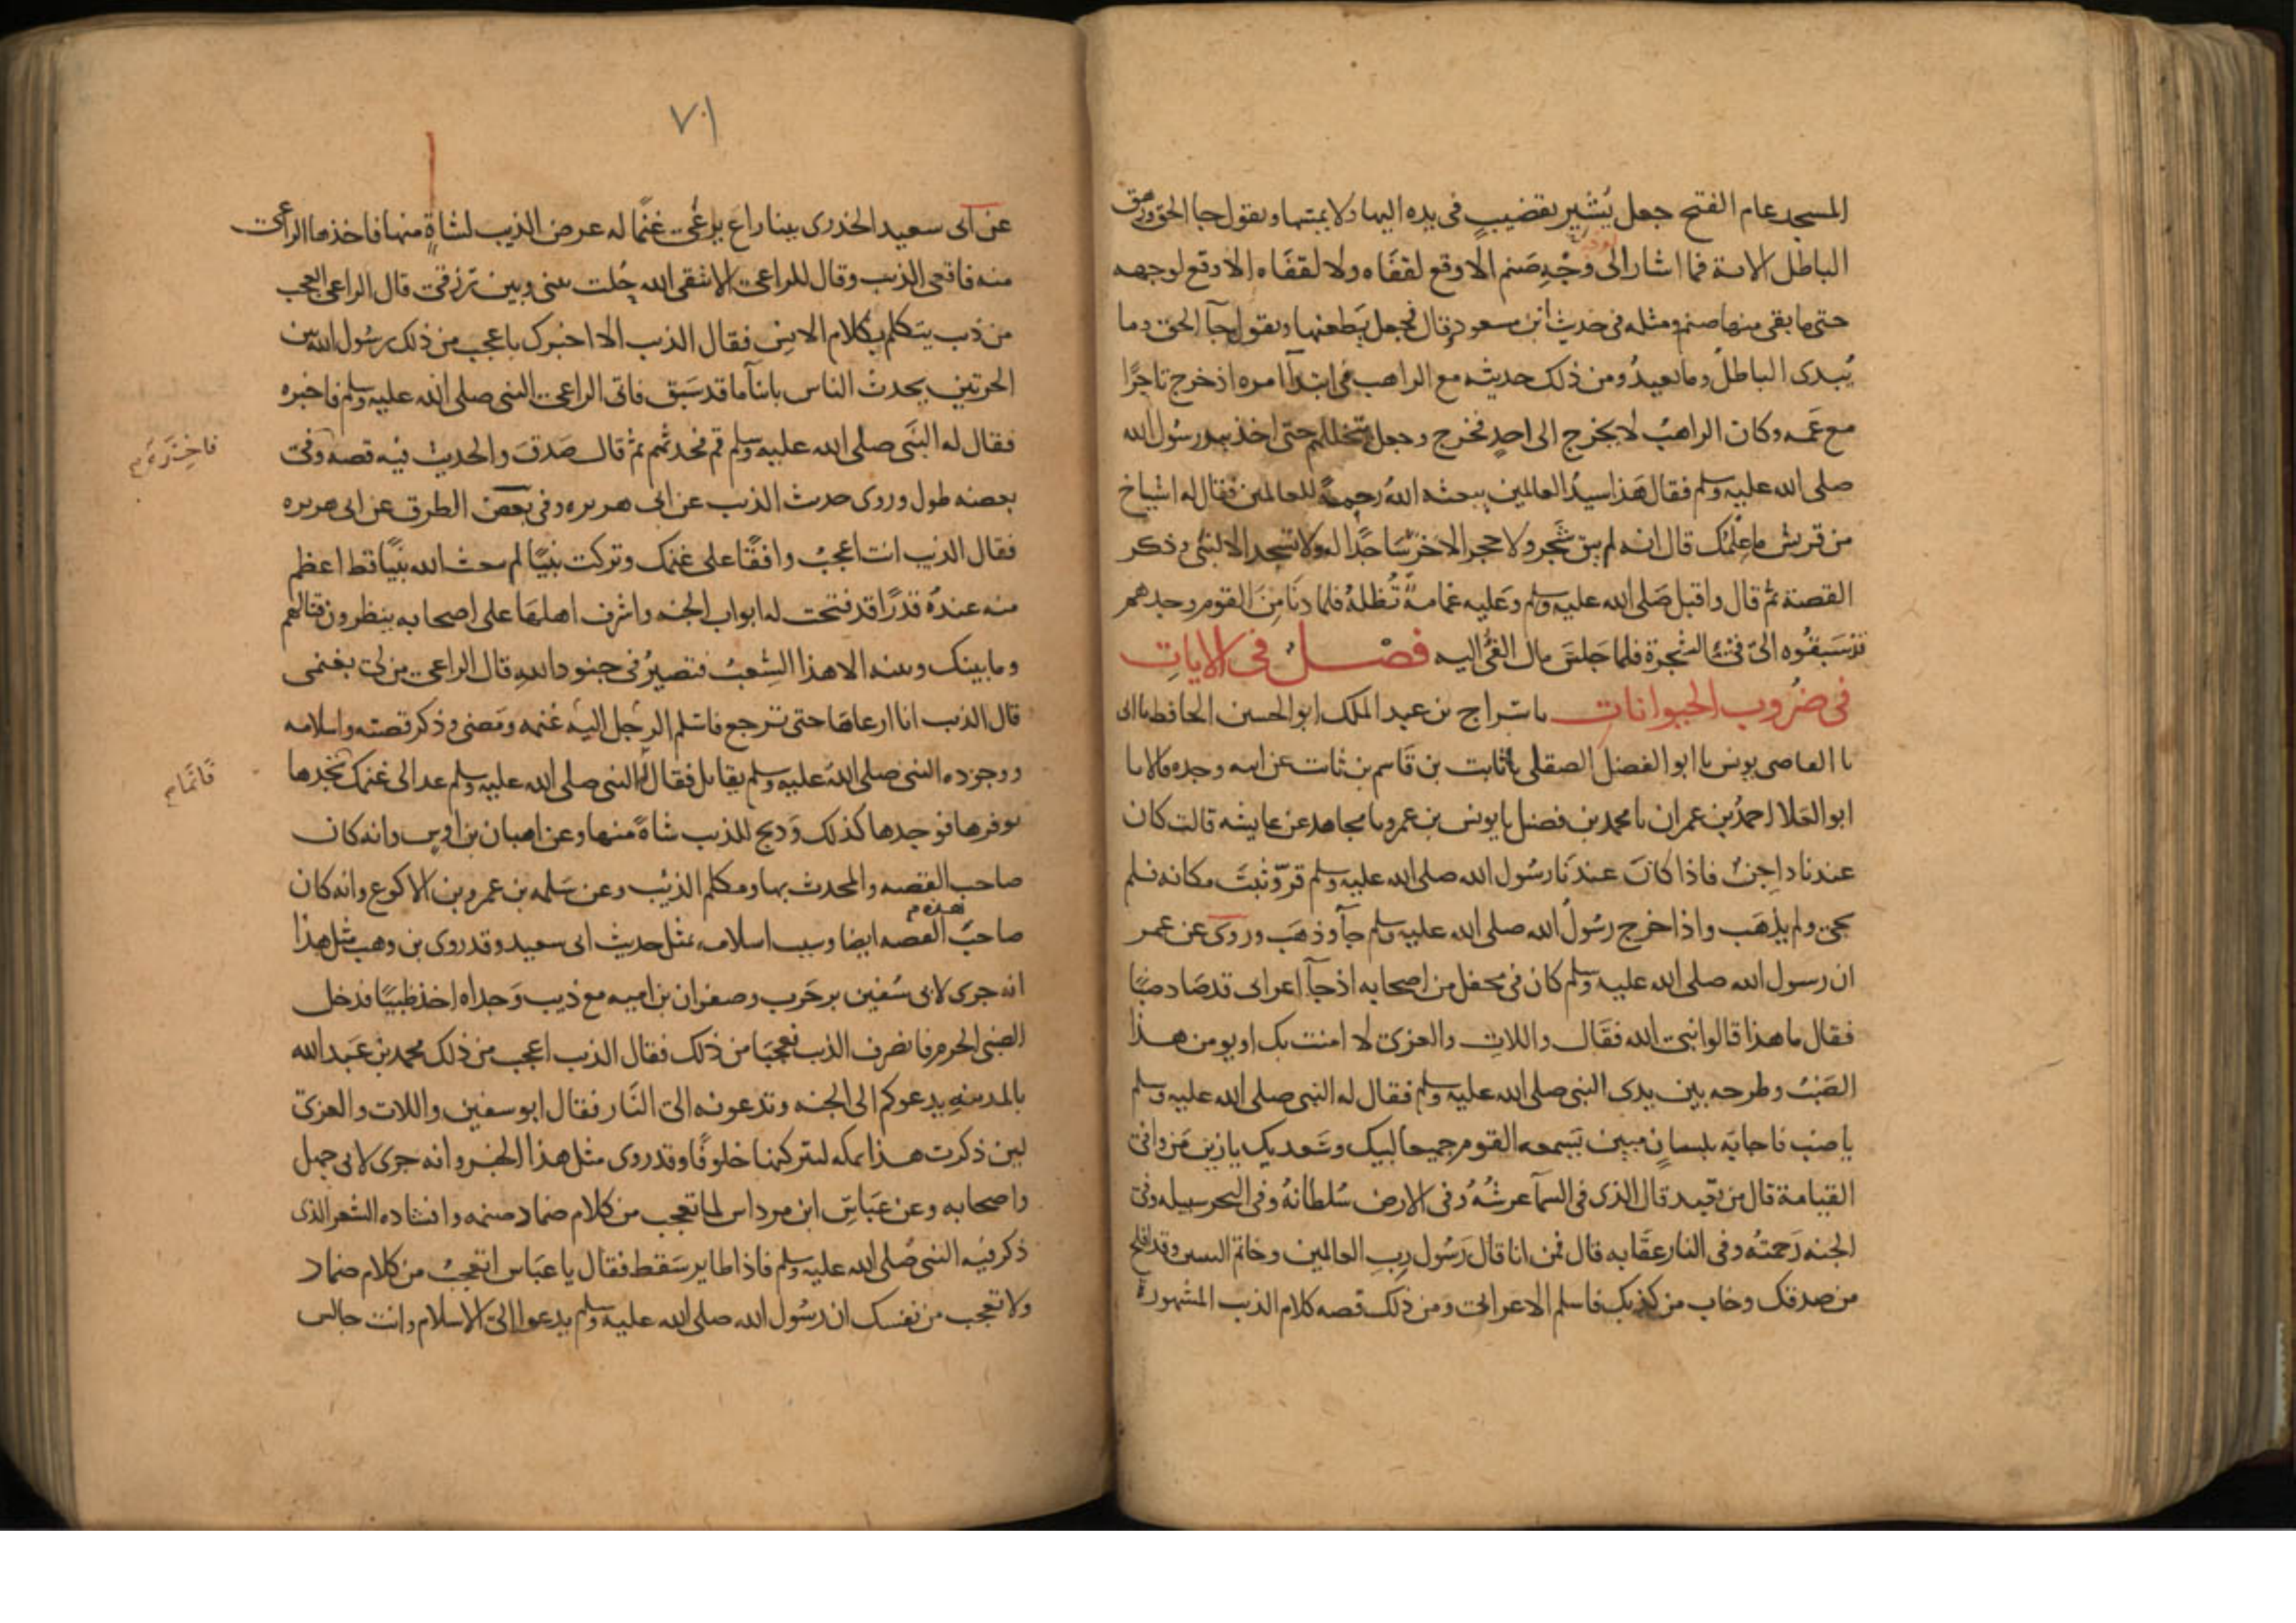 المسجد عام الفتح جعل يُشير بقضيب في يده اليها ولا يمسها ويقول جا الحق وزهق
الباطل الاية فما اشار الى وجْهِ صَنم الا وقع لقفَاه ولا لقفَاه الا وقع لوجهه
حتى ما بقى منها صنم ومثله فى حديث ابن مسعود وقال فجعل يَطعنها ويقول جآ الحق وما
يُبدى الباطلُ وما يعيدُ ومن ذلك حديثه مع الراهب فى ابتدآ امره اذ خرج تاجرًا
مع عَمه وكان الراهبُ لا يخرج الى احدٍ فخرج وجعل يتخللهم حتى اخذ بيد رسُول الله
صلى الله عليه وسلم فقال هَذا سيدُ العالمين يبعثه اللهُ رحمةً للعالمين فقال له اشياخ
من قريش ما عِلْمُك قال انه لم يبق شَجر ولا حجر الا خرّ سَاجدًا له ولا تسجد الا لنبى وذكر
القصة ثم قال واقبل صَلى الله عليه وسلم وعَليه غمامةٌ تُظلهُ فلما دنَا مِنَ القوم وجدهم
قد سَبَقُوه الى فئ الشجرة فلما جَلسَ مال الفئُ اليه فصْلٌ فى الايات
فى ضُروب الحيوانات نا سَراج بن عبد الملك ابو الحسين الحافظ نا ابى
نا القاضى يونس نا ابو الفضل الصقلى نا ثابت بن قَاسم بن ثابت عن ابيه وجده قالا نا
ابو العَلا احمدُ بن عمران نا محمد بن فضيل نا يونس بن عمرو نا مجاهد عن عايشه قالت كان
عندنا داجِنٌ فاذا كانَ عندَنا رسُول الله صلى الله عليه وسلم قرّ وثبتَ مكانه فلم
يجئ ولم يذهَب واذا خرج رسُولُ الله صلى الله عليه وسلم جآ وذهَب وروى عن عمر
ان رسول الله صلى الله عليه وسلم كان فى محفل من اصحابه اذ جآ اعرابى قد صَاد ضبًا
فقال ما هذا قالوا نبى الله فقَال واللات والعزى لا امنت بك او يومن هذا
الضَبُ وطرحه بين يدى النبى صلى الله عليه وسلم فقال له النبى صلى الله عليه وسلم
يا ضب فاجابَه بلسانٍ مبين تسمعه القوم جميعا لبيك وسَعديك يا زين مَن وافى
القيامة قال من تعبد قال الذى فى السمآ عرشُهُ وفى الارض سُلطانهُ وفى البحر سبيله وفى
الجنه رَحمتُه وفى النار عقَابه قال فمن انا قال رَسُول ربِ العالمين وخاتم النبيين وقد افلح
من صدقك وخاب من كذبك فاسلم الاعرابى ومن ذلك قصه كلام الذيب المشهورة
٧٠١
عن ابى سعيد الخدرى بينا راعٍ يرعَى غنمًا له عرض الذيب لشاةٍ منها فاخذها الراعى
منه فاقعى الذيب وقال للراعى الا تتقى الله حُلت بينى وبين رزقى قال الراعى العجب
من ذيب يتكلم بكلام الانس فقال الذيب الا اخبرك باعجب من ذلك رسُول الله بين
الحرتين يحدث الناس بانبآ ما قد سَبق فاتى الراعى النبى صلى الله عليه وسلم فاخبره
فقال له النبَى صلى الله عليه وسلم قم فحدثهم ثم قال صَدقَ والحديث فيه قصه وفى
بعضه طول وروى حديث الذيب عن ابى هريره وفى بعض الطرق عن ابى هريره
فقال الذيب انت اعجبُ واقفًا على غنمك وتركت نبيًا لم يبعث الله نبيًا قط اعظم
منه عندهُ قدرًا قد فتحت له ابواب الجنه واشرف اهلهَا على اصحابه ينظرون قتالهم
وما بينك وبينه الا هذا الشِعبُ فتصيرُ فى جنود اللهِ قال الراعى من لى بغنمى
قال الذيب انا ارعاهَا حتى ترجع فاسْلم الرجل اليه غنمه ومَضى وذكر قصته واسلامه
ووجوده النبى صلى الله عليه وسلم يقاتل فقال له النبى صلى الله عليه وسلم عد الى غنمك تجدها
بوفرها فوجدها كذلك وَذبح للذيب شاةً منها وعن اهبان بن اوس وانه كان
صاحب القصه والمحدث بها ومكلم الذيب وعن سَلمه بن عمرو بن الاكوع وانه كان
صاحبَ هذه القصه ايضا وسبب اسلامه بمثل حديث ابى سعيد وقد روى بن وهب مثل هذا
انه جرى لابى سُفين بن حَرب وصفوان بن اميه مع ذيب وَجداه اخذ ظبيًا فدخل
الظبى الحرم فانصرف الذيب فعجبَا من ذلك فقال الذيب اعجب من ذلك محمد بن عَبد الله
بالمدينهِ يدعوكم الى الجنه وتدعونه الى النَار فقال ابو سفين واللات والعزى
لين ذكرت هذا بمكه لتتركنها خلوفًا وقد روى مثل هذا الخبر وانه جرى لابى جهل
واصحابه وعن عَباسِ ابن مرداس لما تعجب من كلام ضماد صنمه وانشاده الشعر الذى
ذكر فيه النبى صُلى الله عليه وسلم فاذا طاير سَقط فقال يا عبَاس اتعجبُ من كلام ضماد
ولا تعجب من نفسك ان رسُول الله صلى الله عليه وسلم يدعوا الى الاسلام وانت جالس